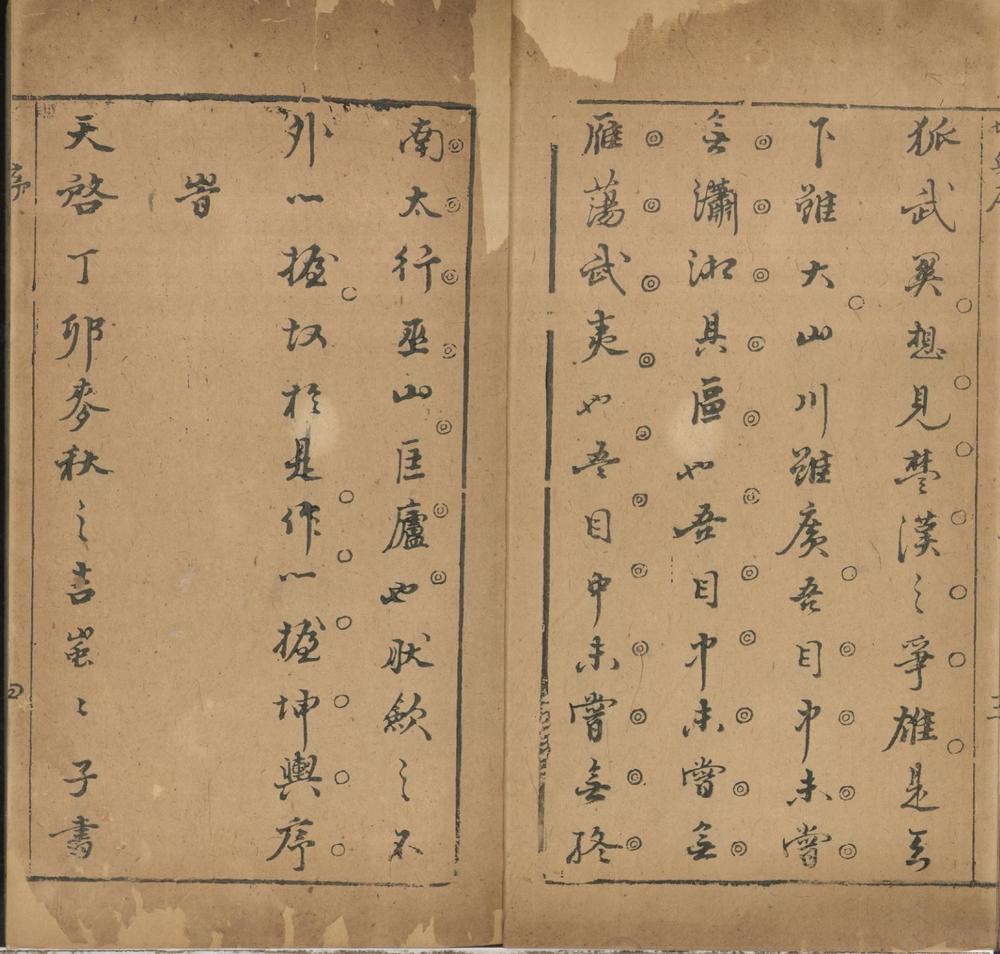 狐武巽想見楚漢之爭雄是天
下雖大山川雖廣吾目中未嘗
無瀟湘具區也吾目中未嘗無
雁蕩武夷也吾目中未嘗無終
南太行巫山匡廬也狀歟之不
外一握故於是作一握坤輿序
旹
天啓丁卯麥秋之吉蚩〻子書
序